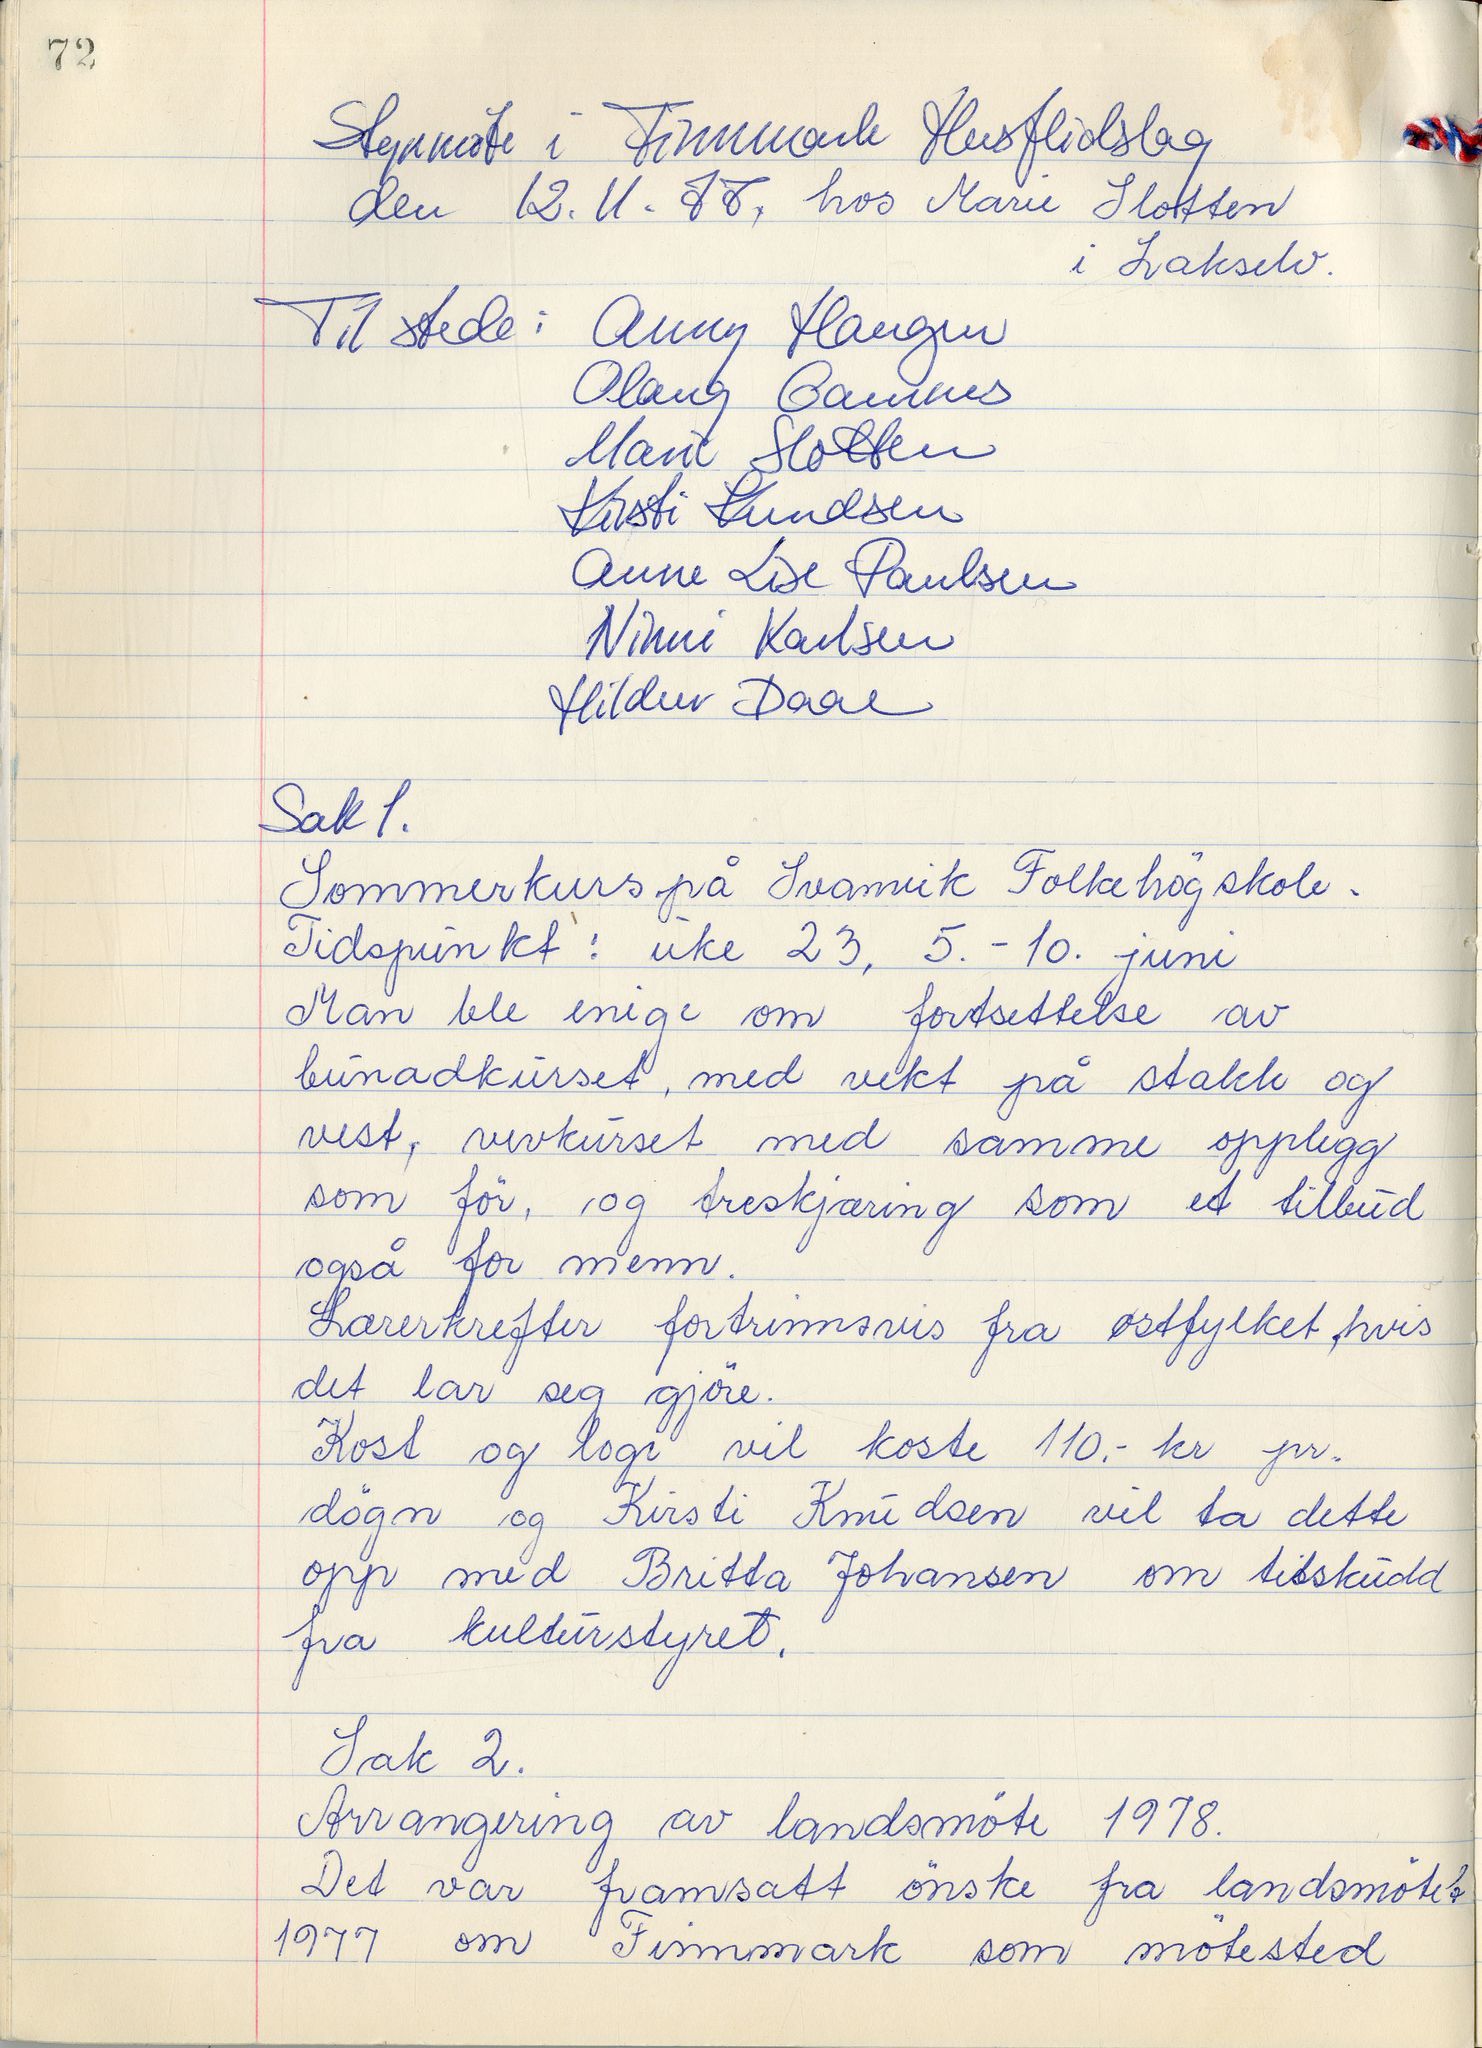 72
Styremøte i Finnmark Husflidslag
den 12.11.77, hos Marie Slotten
i Lakselv.
Til stede: Anny Haugen
Olaug Gamnes
Marie Slotten
Kirsti Knudsen
Anne Lise Paulsen
Ninni Karlsen
Hildur Daae
Sak 1.
Sommerkurs på Svanvik Folkehögskole.
Tidspunkt: uke 23, 5.-10. juni
Man ble enige om fortsettelse av
bunadkurset, med vekt på stakk og
vest, vevkurset med samme opplegg
som för, og treskjæring som et tilbud
også for menn.
Lærerkrefter fortrinnsvis fra østfylket, hvis
det lar seg gjöre.
Kost og logi vil koste 110.- kr pr.
dögn og Kirsti Knudsen vil ta dette
opp med Britta Johansen om tilskudd
fra kulturstyret.
Sak 2.
Arrangering av landsmöte 1978.
Det var framsatt önske fra landsmötet
1977 om Finnmark som mötested